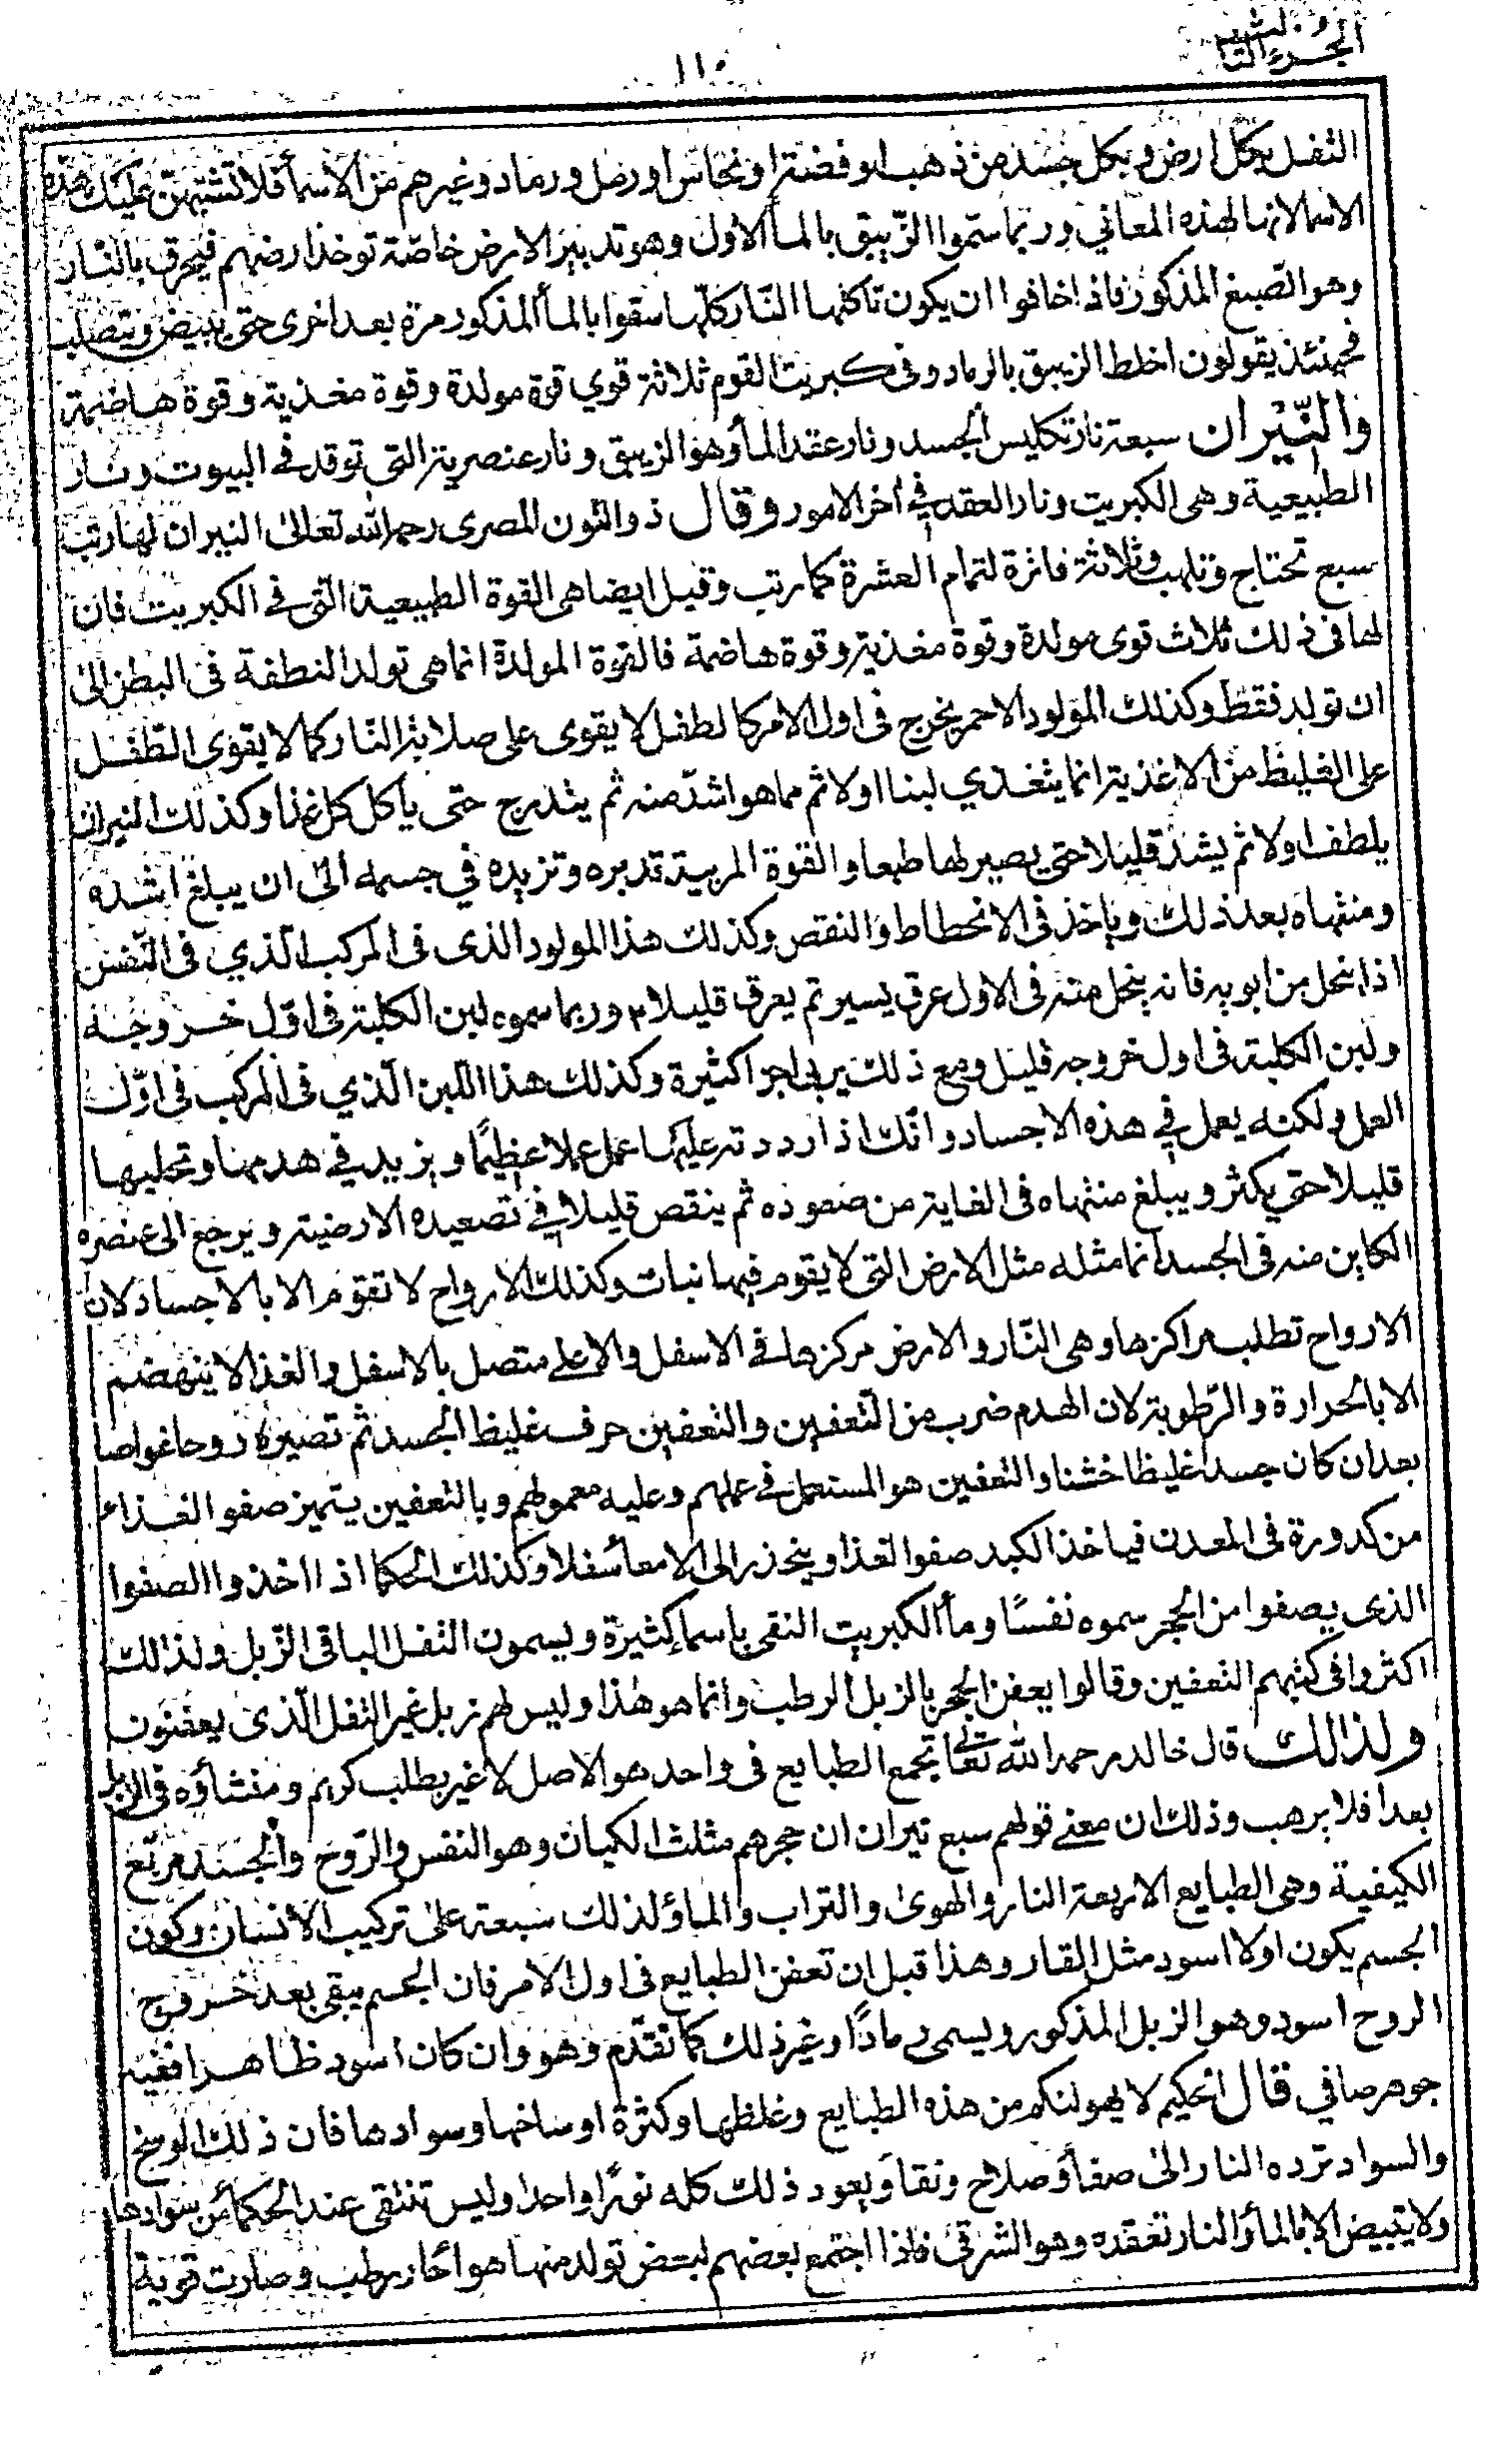 الجزء الثا
١١٠
الثفل بكل ارض وبكل جسد من ذهب او فضة او نحاس او رمل ورماد وغيرهم من الاسمأ فلا تشتبهن عليك هذه
الاسما لانها لهذه المعاني وربما سموا الزيبق بالمأ الاول وهو تدبير الارض خاصّة توخذ ارضهم فيحرق بالنّار
وهو الصّبغ المذكور فاذا خافوا ان يكون تاكلها النّار كلّها سقوا بالمأ المذكور مرة بعد اخرى حتى يبيض ويتصلب
فحينئذ يقولون اخلط الزيبق بالرماد وفى كبريت القوم ثلاثة قوي قوة مولدة وقوة مغذية وقوة هاضمة
والنّيران سبعة نار تكليس الجسد ونار عقد المأ وهو الزيبق ونار عنصرية التي توقد في البيوت ونار
الطبيعية وهى الكبريت ونار العقد في أخر الامور وقال ذو النون المصرى رحمه الله تعالى النيران لها رتب
سبع تحتاج وتلهب وثلاثة فاترة لتمام العشرة كما رتب وقيل ايضا هى القوة الطبيعية التى في الكبريت فان
لها فى ذلك ثلاث قوى مولدة وقوة مغذية وقوة هاضمة فالقوة المولدة انما هى تولد النطفة فى البطن الى
ان تولد فقط وكذلك المولود الاحمر يخرج فى اول الامر كالطفل لا يقوى على صلابة النّار كما لا يقوى الطّفل
على الغليظ من الاغذية انما يتغذي لبنا اولا ثم مما هو اشدّ منه ثم يتدرج حتى ياكل كل غذا وكذلك النيران
يلطف اولا ثم يشد قليلا حتى يصير لها طبعا والقوة المربية تدبره وتزيده في جسمه الى ان يبلغ اشده
ومنتهاه بعد ذلك وياخذ فى الانحطاط والنقص وكذلك هذا المولود الذى فى المركب الّذي فى النّفس
اذا ينحل من ابويه فانه ينحل منه فى الاول عرق يسير ثم يعرق قليلا م وربما سموه لبن الكلبة فى اوّل خروجه
ولبن الكلبة فى اول خروجه قليل ومع ذلك يربى اجزا كثيرة وكذلك هذا اللبن الّذي فى المركب فى اوّل
العمل ولكنه يعمل في هذه الاجساد وانّك اذا رددته عليها عمل عملا عظيمًا ويزيد في هدمها وتحليها
قليلا حتى يكثر ويبلغ منتهاه فى الغاية من صعوده ثم ينقص قليلا في تصعيده الارضية ويرجع الى عنصره
الكاين منه فى الجسد انما مثله مثل الارض التى لا يقوم فيها نبات وكذلك الارواح لا تقوم الا بالاجساد لان
الارواح تطلب مراكزها وهى النّار والارض مركزها في الاسفل والاعلى متصل بالاسفل والغذا لا ينهضم
الا بالحرارة والرّطوبة لان الهدم ضرب من التّعفين والتعفين حرف غليظ الجسد ثم تصيره روحا غواصا
بعد ان كان جسدا غليظا خشنا والتعفين هو المستعمل في عملهم وعليه معمولهم وبالتعفين يتميز صفو الغذاء
من كدورة فى المعدن فياخذ الكبد صفو الغذا وينحذر الى الامعا سفلا وكذلك الحكما اذا اخذوا الصفوا
الذى يصفوا من الحجر سموه نفسًا ومأ الكبريت النقى باسما كثيرة ويسمون الثفل الباقى الزّبل ولذالك
اكثروا فى كتبهم التعفين وقالوا يعفن الحجر بالزبل الرطب وانما هو هذا وليس لهم زبل غير الثفل الّذى يعفنون
ولذالك قال خالد رحمه الله تعالى تجمع الطبايع فى واحد هو الاصل لا غير يطلب كريم ومنشاؤه فى الزبل
بعدا فلا يرهب وذلك ان معنى قولهم سبع نيران ان حجرهم مثلث الكيان وهو النفس والرّوح والجسد مربّع
الكيفية وهى الطبايع الاربعة النار والهوى والتراب والمأ ولذلك سبعة على تركيب الانسان وكون
الجسم يكون اولا اسود مثل القار وهذا قبل ان تعفن الطبايع فى اول الامر فان الجسم يبقى بعد خروج
الروح اسود وهو الزبل المذكور ويسمى رمادًا وغير ذلك كما تقدّم وهو وان كان اسود ظاهرا ففيه
جوهر صافي قال الحكيم لا يهولنكم من هذه الطبايع وغلظها وكثرة اوساخها وسوادها فان ذلك الوسخ
والسواد ترده النار الى صفأ وصلاح ونقأ ويعود ذلك كله نورًا واحدا وليس تنتقى عند الحكمأ من سوادها
ولا يتبيض الا بالمأ والنار تعقده وهو الشرقى فاذا اجتمع بعضهم لبعض تولد منها هوا حار رطب وصارت قوية